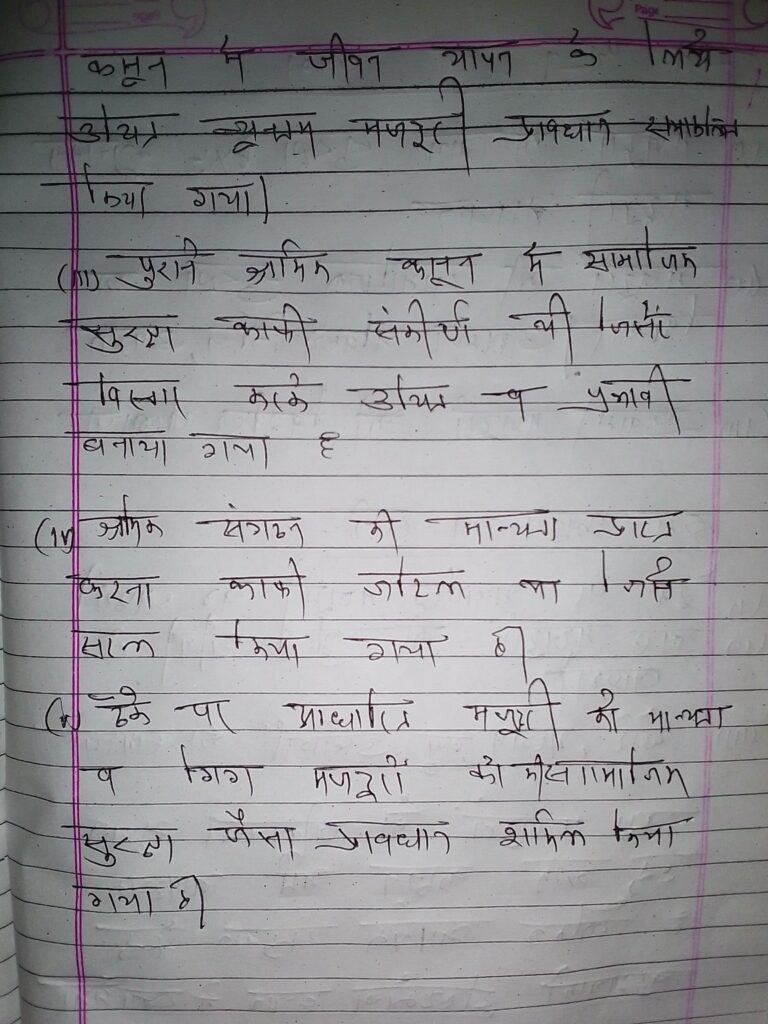 कानून में जीवन यापन के लिये
उचित न्यूनतम मजदूरी प्रावधान समायोजित
किया गया।
(iii) पुराने श्रमिक कानून में सामाजिक
सुरक्षा काफी संकीर्ण थी जिसमें
विस्तार करके उचित व प्रभावी
बनाया गया है
(iv) श्रमिक संगठन की मान्यता प्राप्त
करना काफी जटिल था जिसे
सरल किया गया है।
(v) ठेके पर आधारित मजदूरी को मान्यता
व गिग मजदूरों को सामाजिक
सुरक्षा जैसा प्रावधान शामिल किया
गया है।